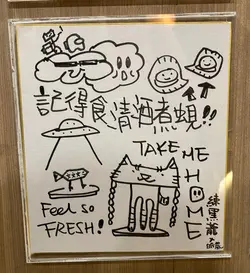 記得食清酒煮蜆!!
TAKE ME
HOME
Feel so
FRESH!